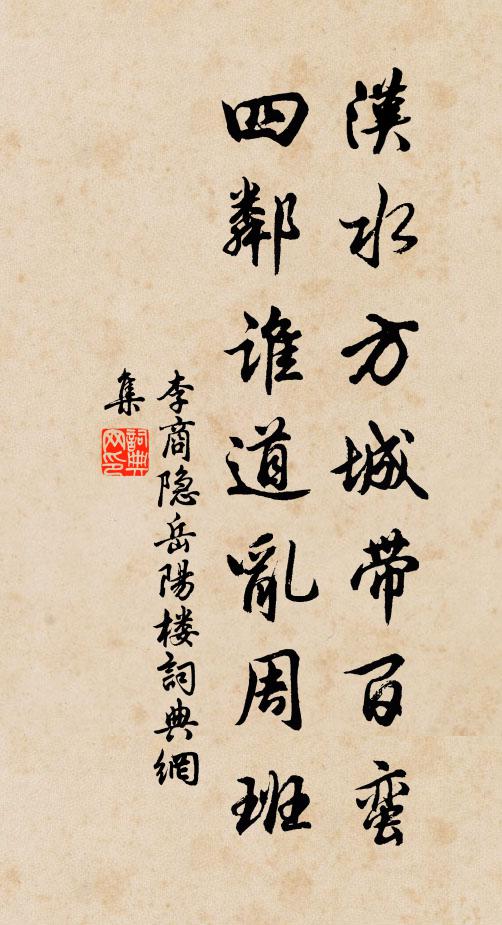 漢水方城带百蛮
四鄰誰道亂周班
李商隐岳陽楼詞典網
集
詞典网印